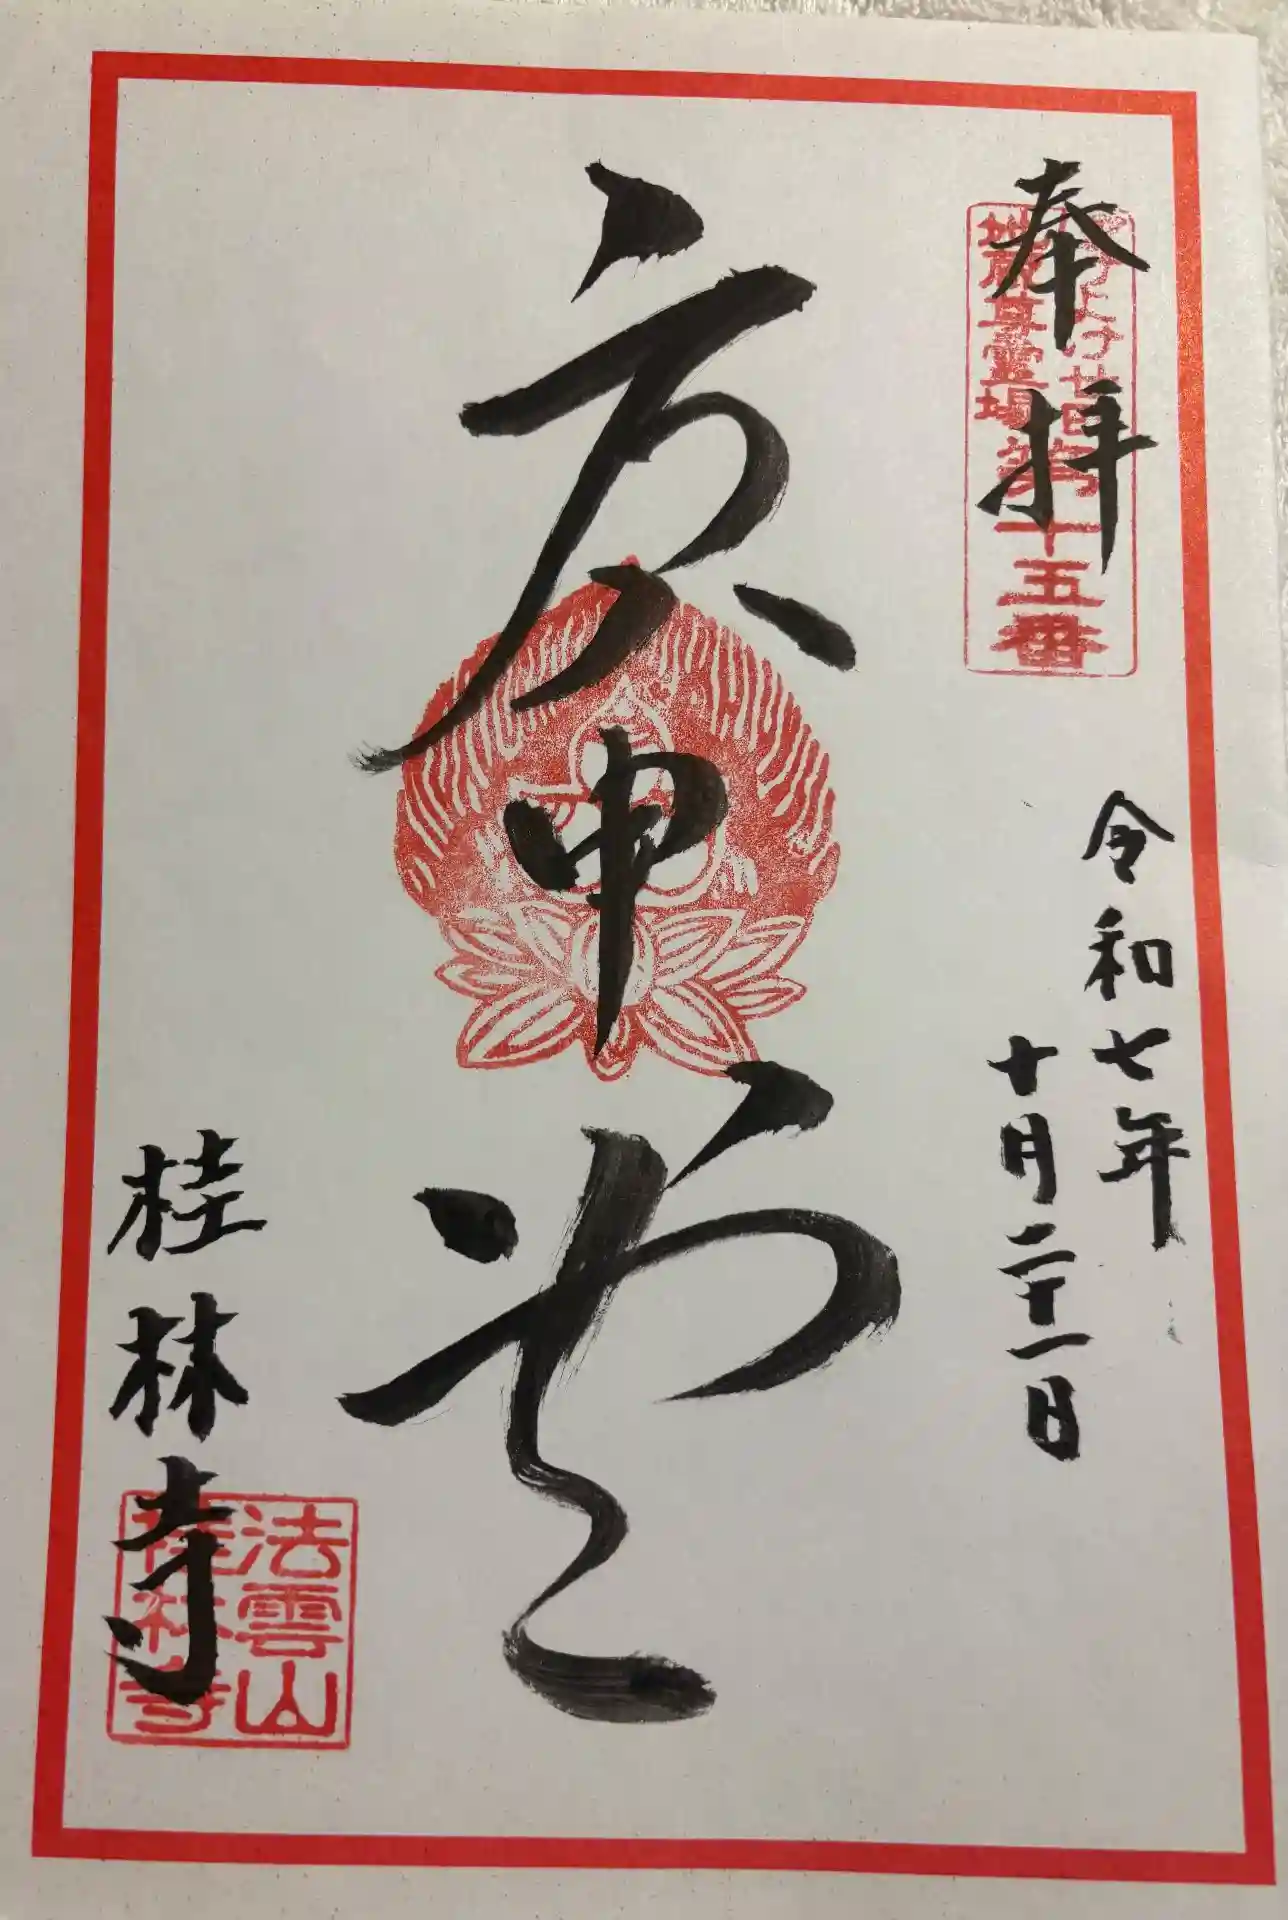 奉拝
地蔵尊霊場
第十五番
令和七年
十月二十一日
庚申堂
桂林寺
法雲山
桂林寺